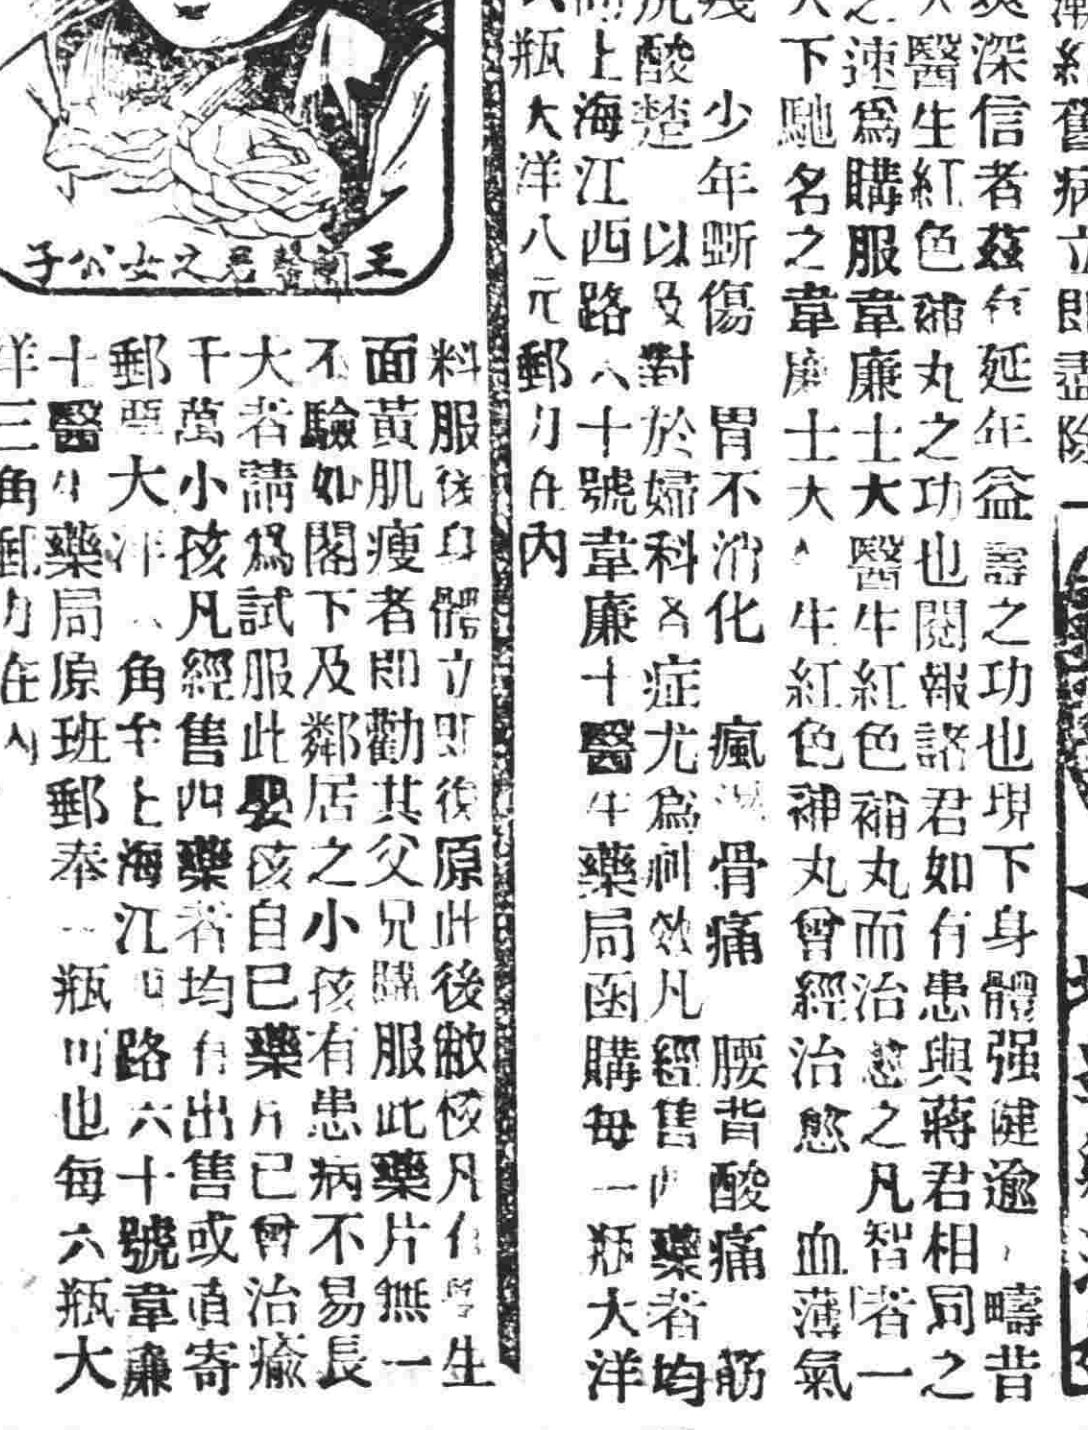 漸紅舊病立即盡除
深信者茲有延年益壽之功也現下身體强健逾疇昔
醫生紅色補丸之功也閱報諸君如有患與蔣君相同之
之速爲購服韋廉士大醫生紅色補丸而治愈之凡智者一
下馳名之韋廉士大醫生紅色補丸曾經治愈 血薄氣
少年斲傷 胃不消化 瘋濕骨痛 腰背酸痛 筋
酸楚 以及對於婦科各症尤爲神效凡經售西藥者均
上海江西路六十號韋廉士醫生藥局函購每一瓶大洋
瓶大洋八元郵力在內
王蘭馨君之女公子
料服後身體立即復原此後敝校凡有學生
面黃肌瘦者即勸其父兄購服此藥片無一
不驗如閣下及鄰居之小孩有患病不易長
大者請爲試服此嬰孩自己藥片已曾治癒
千萬小孩凡經售西藥者均有出售或直寄
郵票大洋 角至上海江西路六十號韋廉
士醫生藥局原班郵奉一瓶可也每六瓶大
洋三角郵力在內